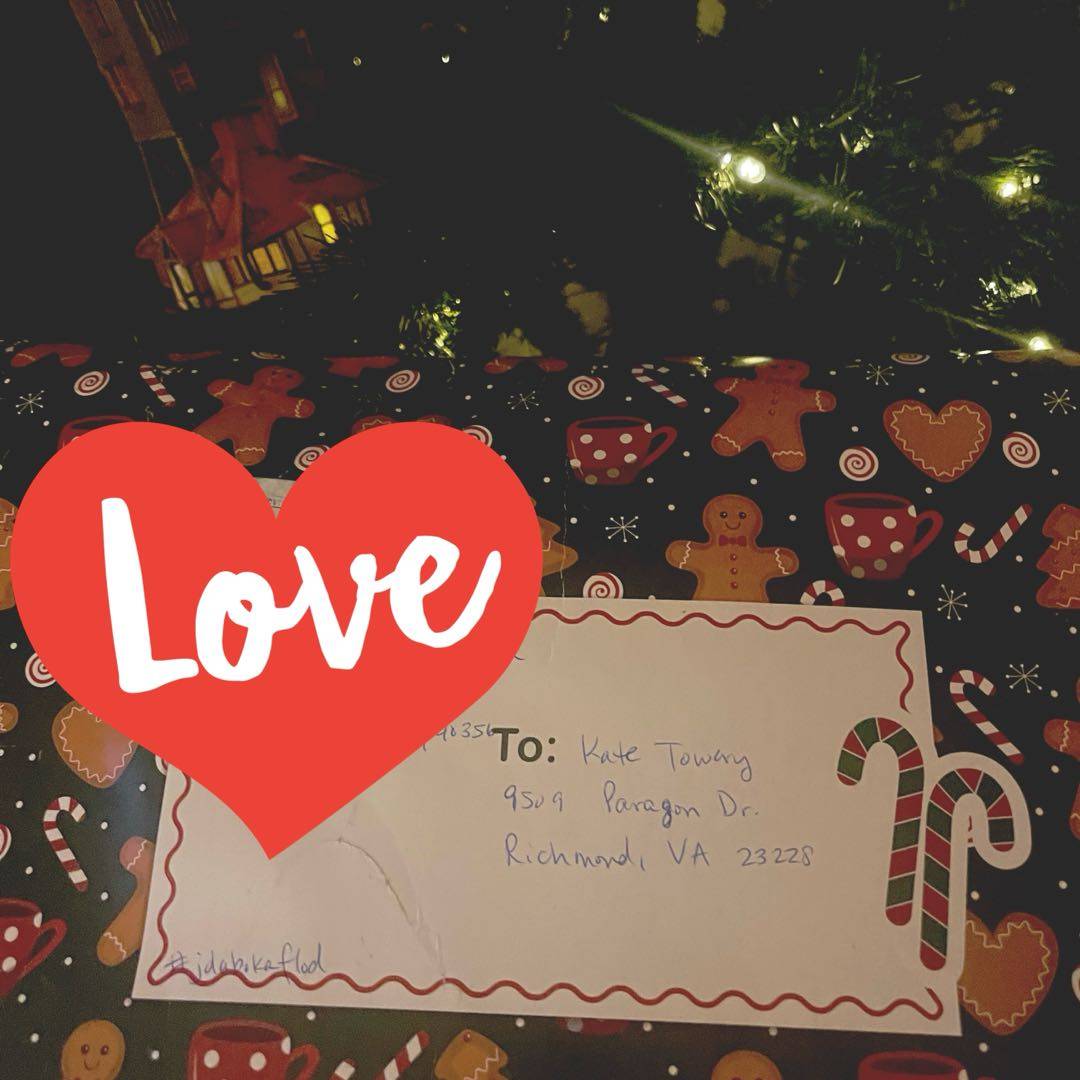 Love
90356
To: Kate Towery
9509 Paragon Dr.
Richmond, VA 23228
#jdabokaflod